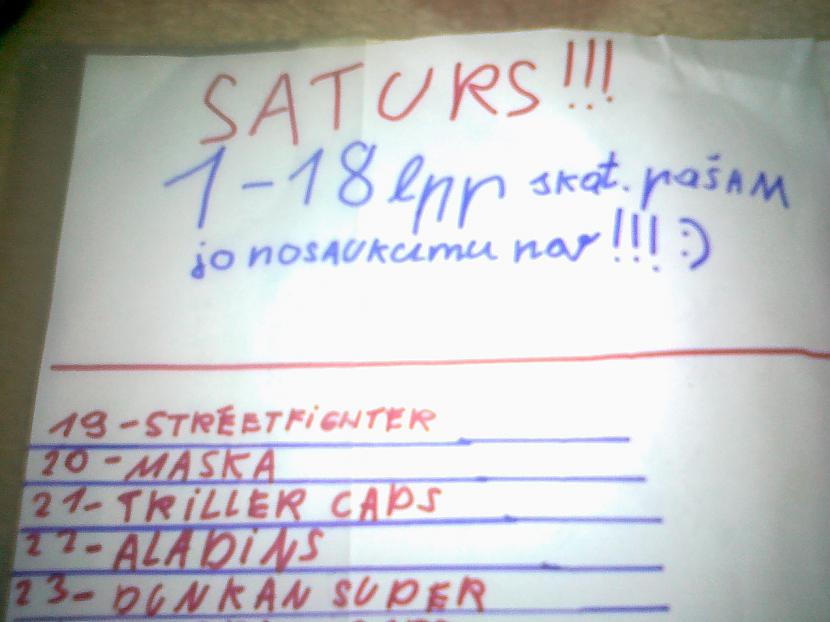 SATURS!!!
1-18 lpp skat. pašam
jo nosaukumu nav!!! :)
19-STREETFiGHTER
20-MASKA
21-TRiLLER CAPS
22-ALADiNS
23-DUNKAN SUPER